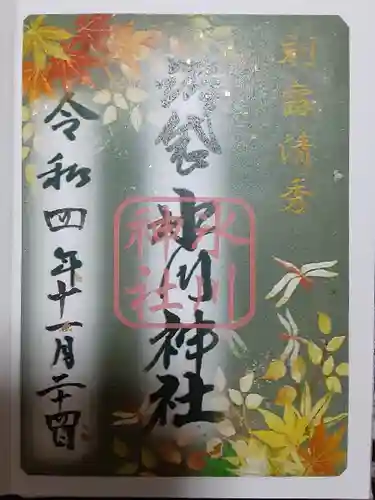 刻露清秀
沼袋氷川神社
氷川神社
令和四年十一月二十四日